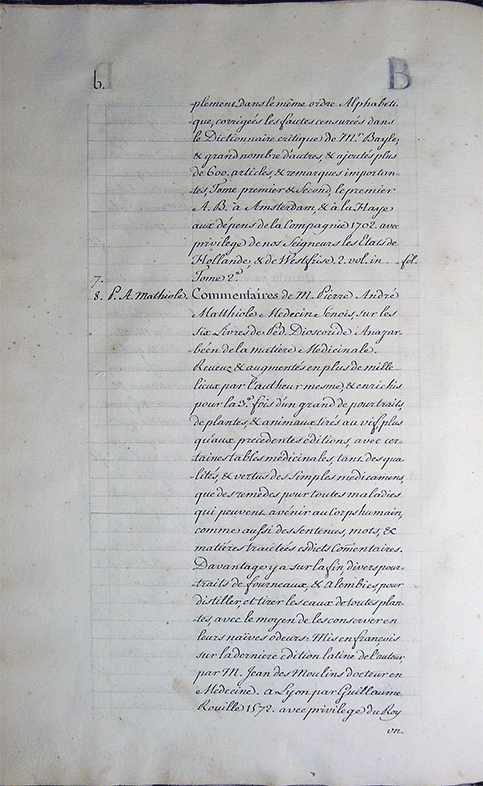 b. B
plement dans le même ordre Alphabeti-
que, corrigées les fautes censurées dans
le Dictionnaire critique de Mr. Bayle,
& grand nombre d'autres, & ajoutés plus
de 600. articles, & remarques importan-
tes, Tome premier & Second, le premier
A. B. à Amsterdam, & à la Haye
aux dépens de la Compagnie 1702. avec
privilege de nos Seigneurs les Etats de
Hollande, & de Westfrise 2. vol. in fol.
7. Tome 2.d
8. P. A. Mathiole. Commentaires de M. Pierre André
Matthiole Medecin Senois, sur les
six Livres de Ped. Dioscoride Anazar-
béen de la matière Medicinale.
Reveuz & augmentés en plus de mille
lieux par l'autheur mesme, & enrichis
pour la 3.e fois d'un grand de pourtraits,
de plantes, & animaux tirés au vif, plus
qu'aux precedentes editions, avec cer-
taines tables médicinales, tant des qua-
lités, & vertus des simples médicamens,
que des remèdes pour toutes maladies
qui peuvent avénir au Corps humain,
comme aussi des sentences, mots, &
matières traictées esdicts Comentaires.
Davantage y a sur la fin, divers pour-
traits de fourneaux, & alembics, pour
distiller, et tirer les eaux de toutes plan-
tes, avec le moyen de les conserver en
leurs naïves odeurs: Mis en françois
sur la dernière edition latine de l'auteur
par M. Jean des Moulins docteur en
Médecine. a Lyon par Guillaume
Rouille 1572. avec privilege du Roy
vn.